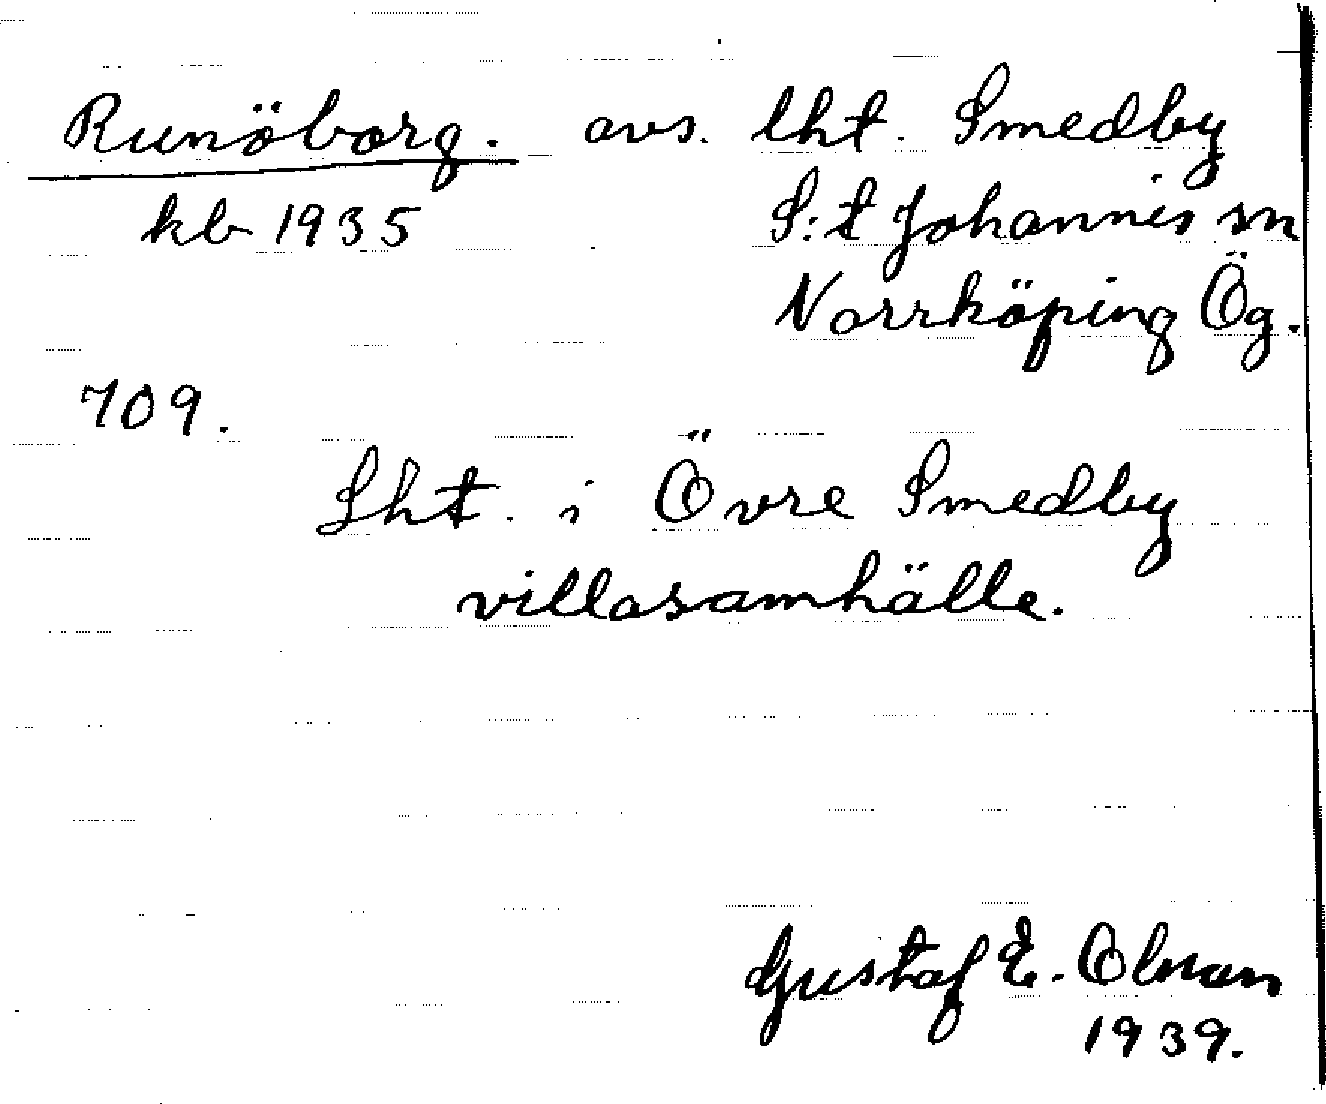 Runöborg. avs. lht. Smedby
kb 1935 S:t Johannis sn
Norrköping Ög.
709.
Lht. i Övre Smedby
villasamhälle.
Gustaf E. Olman
1939.